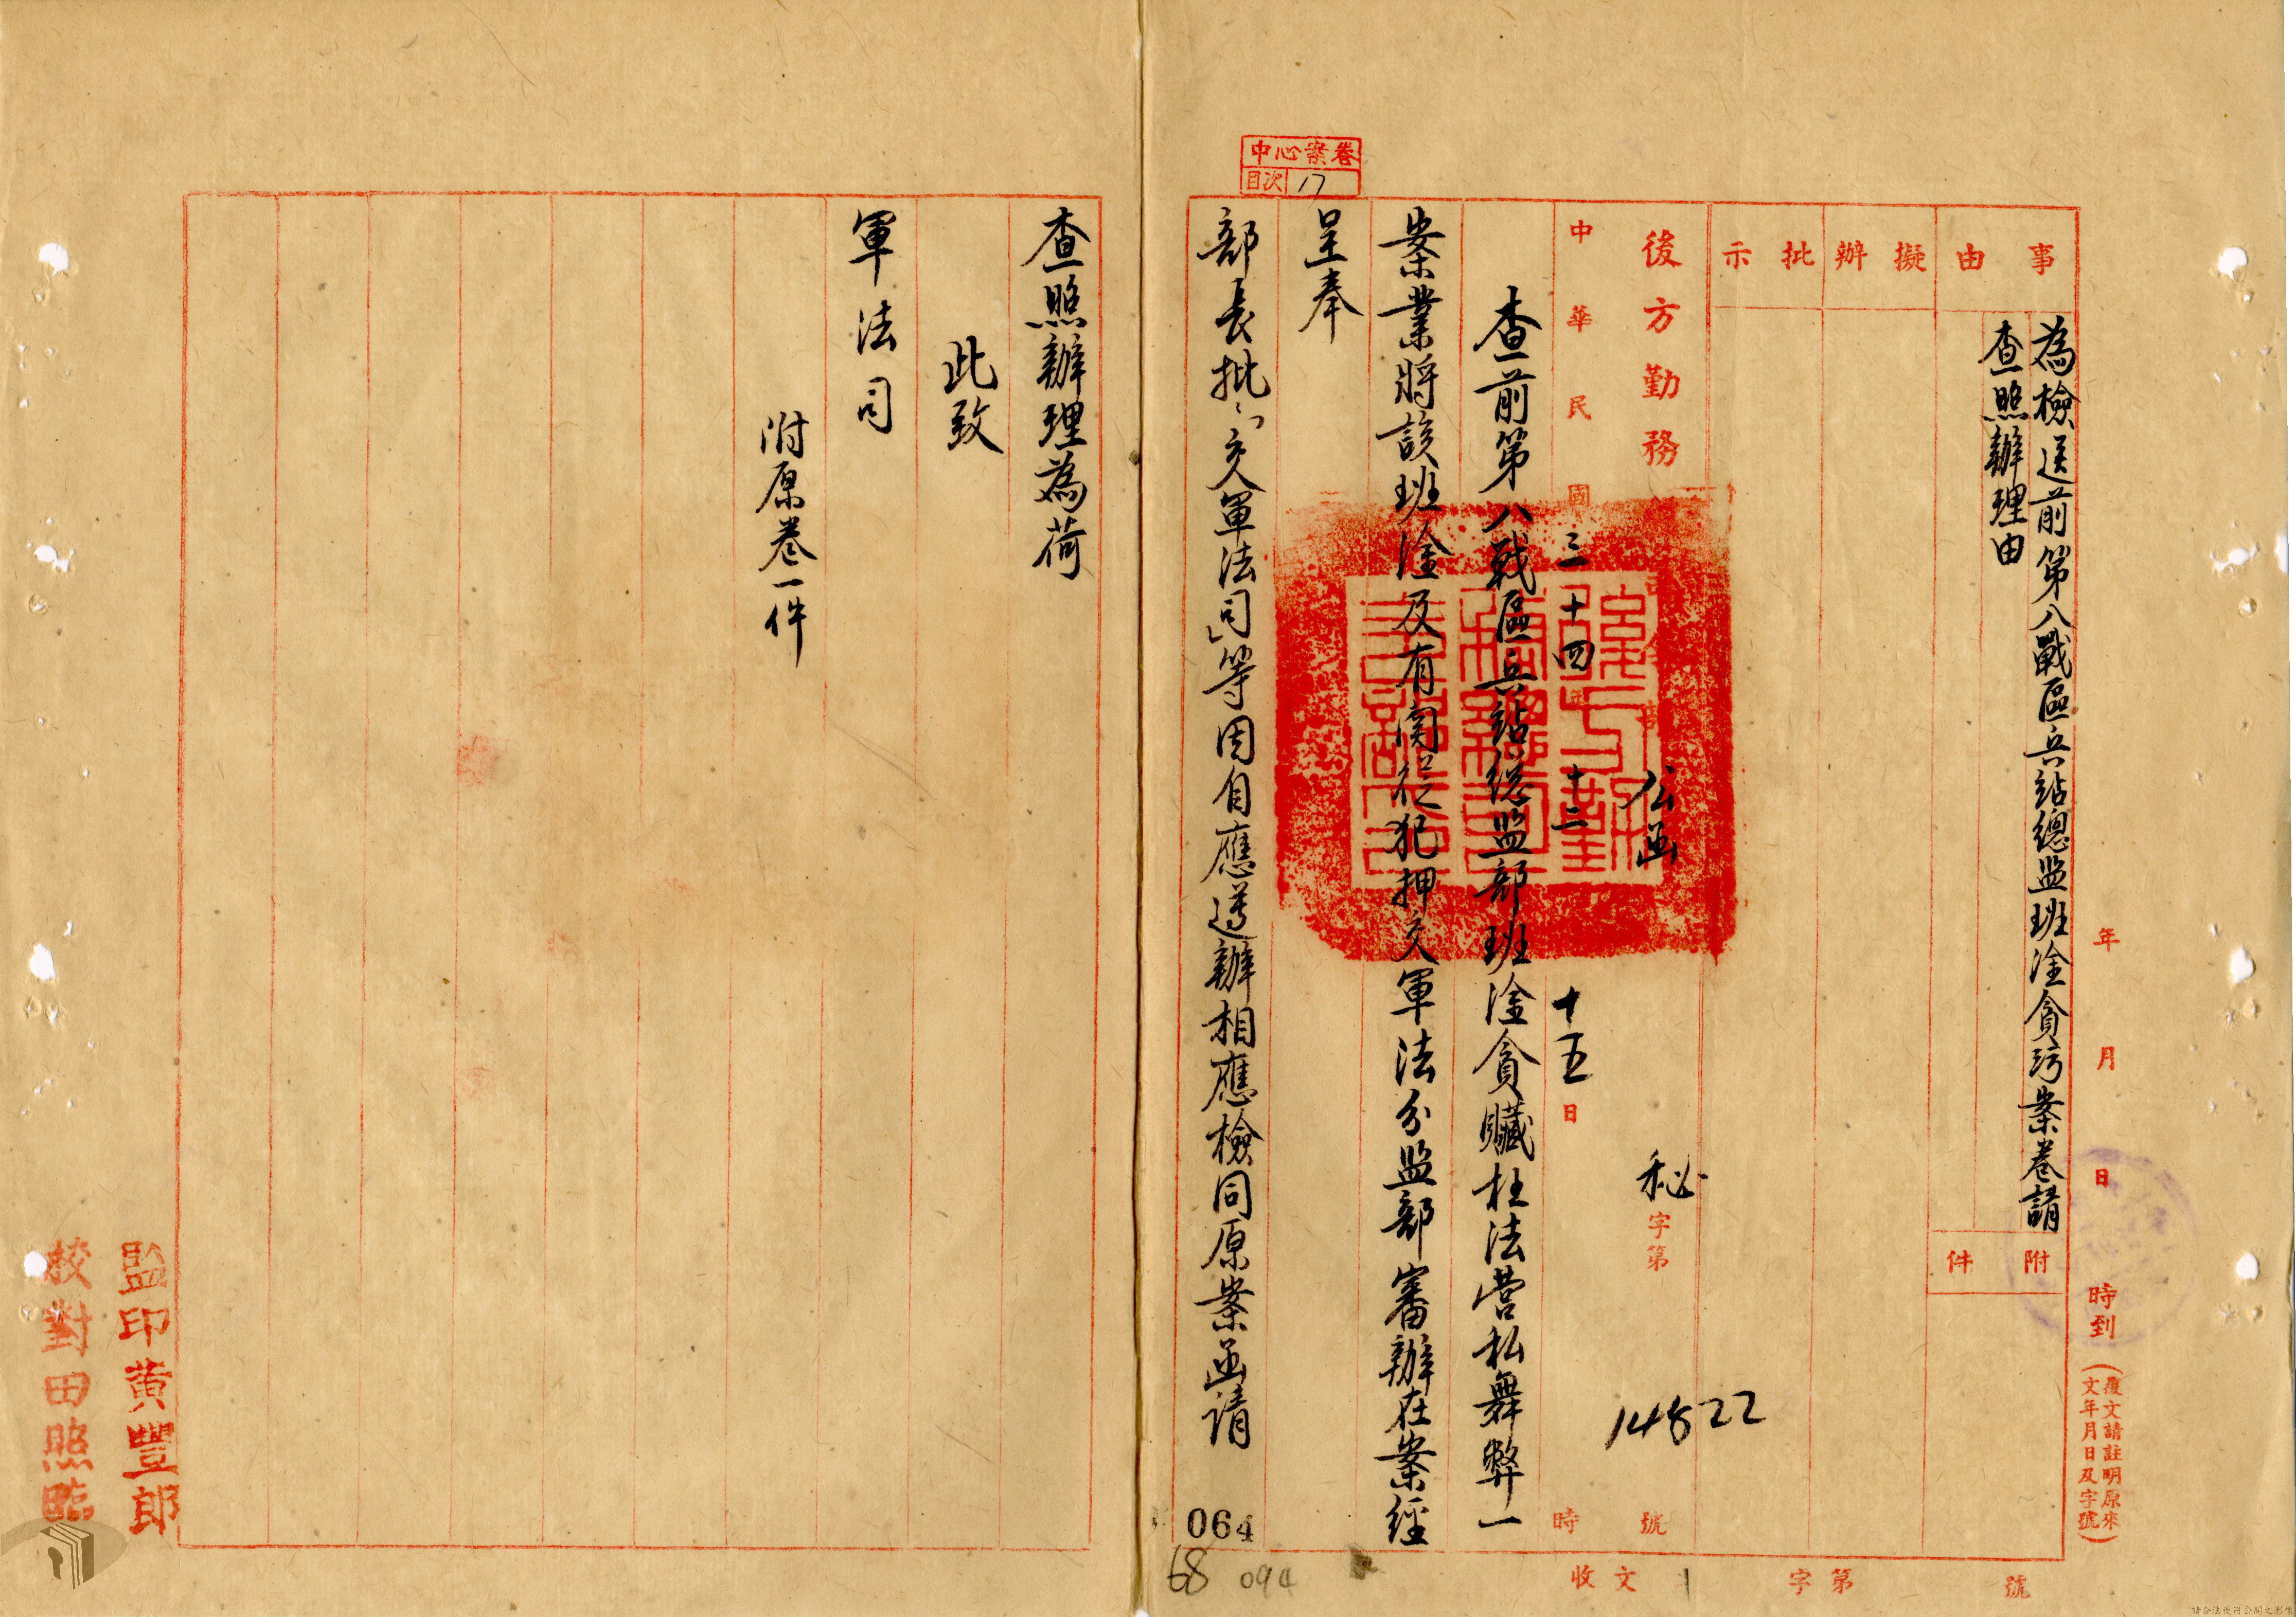 中心案卷
目次 17
年 月 日 時到
(覆文請註明原來
文年月日及字號)
事由
為檢送前第八戰區兵站總監班淦貪污案卷請
查照辦理由
附件
擬辦
批示
後方勤務 公函 秘字第 14822 號
中華民國三十四年十二 十五日 時
查前第八戰區兵站總監部班淦貪贓枉法營私舞弊一
案業將該班淦及有関從犯押交軍法分監部審辦在案經
呈奉
部長批「交軍法司」等因自應遵辦相應檢同原案函請
查照辦理為荷
此致
軍法司
附原卷一件
監印黃豐郎
校對田照臨
收文 字第 號
064
68
094
請合法使用公開之影像